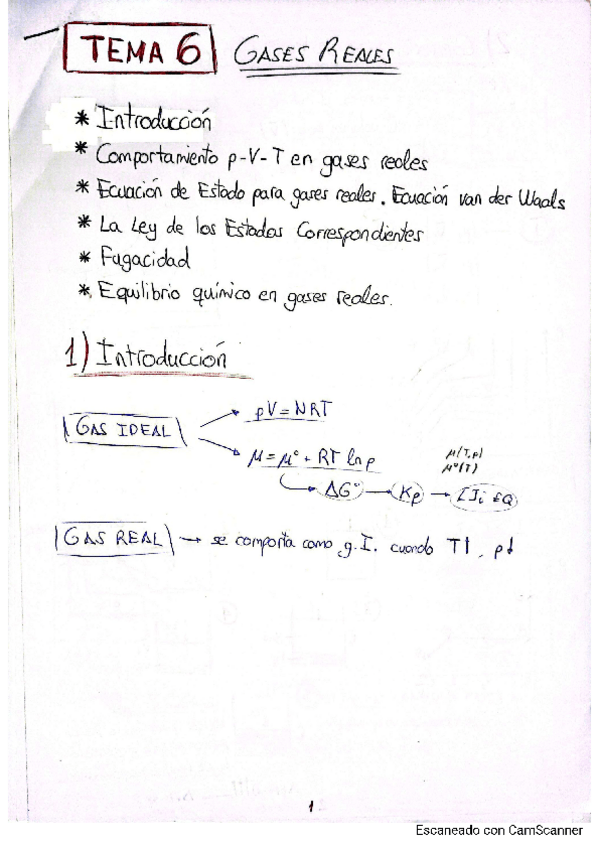 TEMA 6 GASES REALES
* Introducción
* Comportamiento p-V-T en gases reales
* Ecuación de Estado para gases reales. Ecuación van der Waals
* La Ley de los Estados Correspondientes
* Fugacidad
* Equilibrio químico en gases reales.
1) Introducción
GAS IDEAL → pV = NRT
→ μ = μ° + RT ln p
μ(T,p)
μ°(T)
→ ΔG° → Kp → [J]i EQ
GAS REAL → se comporta como g.I. cuando T↑, p↓
1
Escaneado con CamScanner